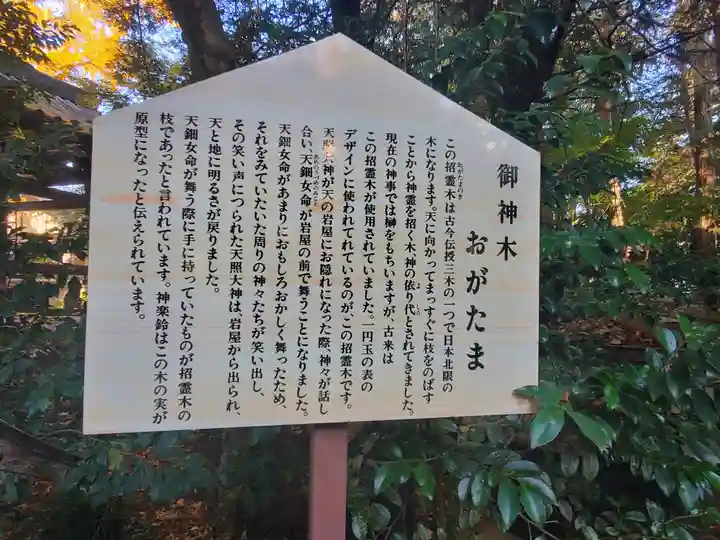 御神木
おがたま
この招霊木は古今伝授三木の一つで日本北限の
おがたまのき
木になります。天に向かってまっすぐに枝をのばす
ことから神霊を招く木・神の依り代とされてきました。
現在の神事では榊をもちいますが、古来は
この招霊木が使用されていました。一円玉の表の
デザインに使われているのが、この招霊木です。
天照大神が天の岩屋にお隠れになった際、神々が話し
合い、天鈿女命が岩屋の前で舞うことになりました。
あめのうずめのみこと
天鈿女命があまりにおもしろおかしく舞ったため、
それをみていたいた周りの神々たちが笑い出し、
その笑い声につられた天照大神は、岩屋から出られ、
天と地に明るさが戻りました。
天鈿女命が舞う際に手に持っていたものが招霊木の
枝であったと言われています。神楽鈴はこの木の実が
原型になったと伝えられています。